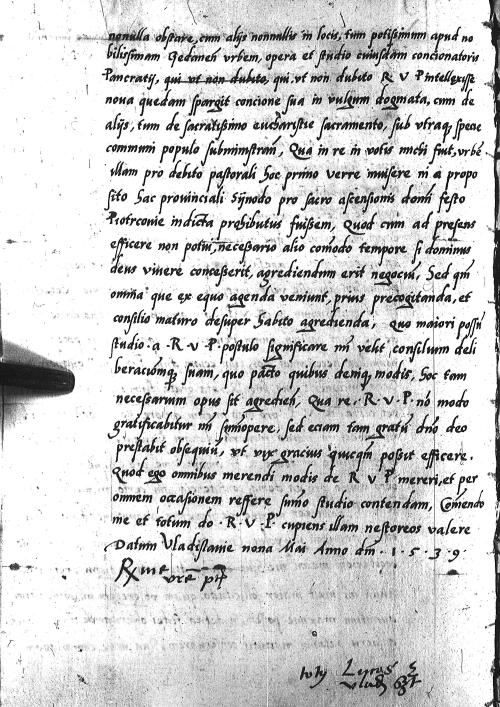 nonulla obstare, cum alijs nonnullis in locis, tum potissimum apud no
bilissimam Gedaneñ vrbem, opera et studio cuiusdam concionatoris
Pancratij, qui vt non dubito, qui vt non dubito R V P intellexisse
noua quedam spargit concione sua in vulgum dogmata, cum de
alijs, tum de sacratissimo eucharistie sacramento, sub vtraq, specie
communi populo subministrañ, Qua in re in votis michi fuit, vrbẽ
illam pro debito pastorali hoc primo verre inuisere ni a propo
sito hac prouinciali Sÿnodo pro sacro ascensionis domi festo
Piotrcouie indicta prohibitus fuissem, Quod cum ad presens
efficere non potui, necessario alio comodo tempore si dominus
deus viuere concesserit, agrediendum erit negociũ, Sed qm
omnia que ex equo agenda veniunt, prius precogitanda, et
consilio maturo desuper habito agredienda, Quo maiori possũ
studio · a · R · V · P · postulo significare mi velit consilium deli
beracionemq suam, quo pacto quibus deniq, modis, hoc tam
necessarum opus sit agredieñ, Qua re · R · V · P · nõ modo
gratificabitur mi sumopere, sed eciam tam gratũ dno deo
prestabit obsequiũ, vt vix gracius quicqm possit efficere.
Quod ego omnibus merendi modis de R V P mereri, et per
omnem occasionem reffere sumo studio contendam, Comendo
me et totum do · R · V · P · cupiens illam nestoreos valere
Datum Vladislauie nona Mai Anno dm · 1 · 5 · 3 · 9 ·
R me
vre p
Lucas
vlad